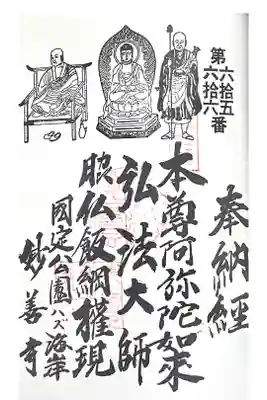 第六拾五番
六拾六
奉納経
本尊阿弥陀如来
弘法大師
脇仏飯綱権現
国定公園ハズ海岸
妙善寺